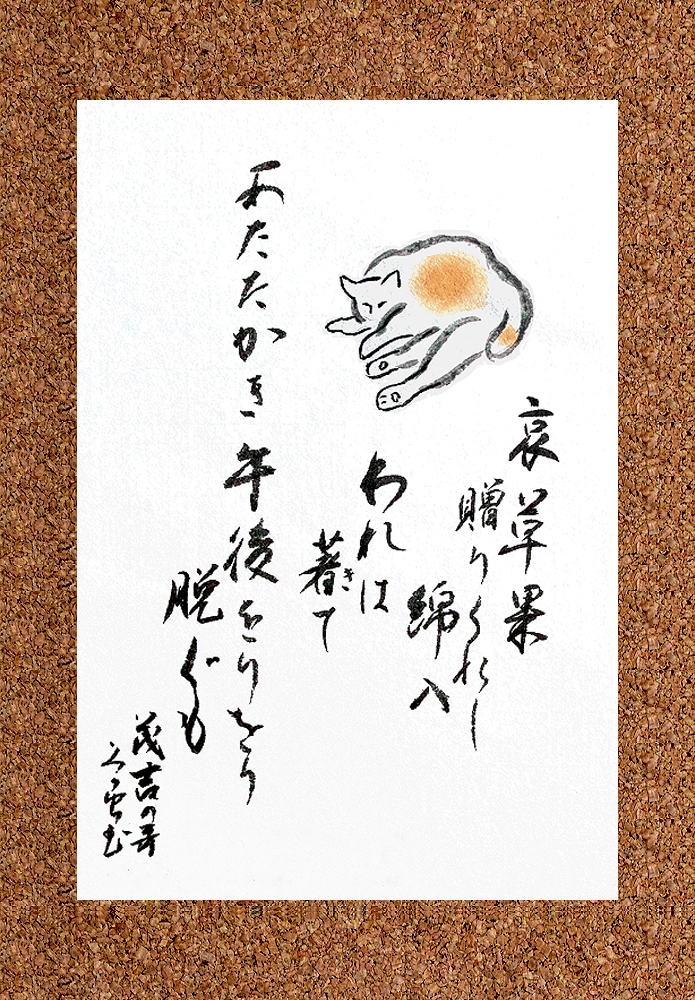 哀草果
贈りくれし
綿入
われは
著て
き
あたたかき午後をりをり
脱ぐも
茂吉の歌